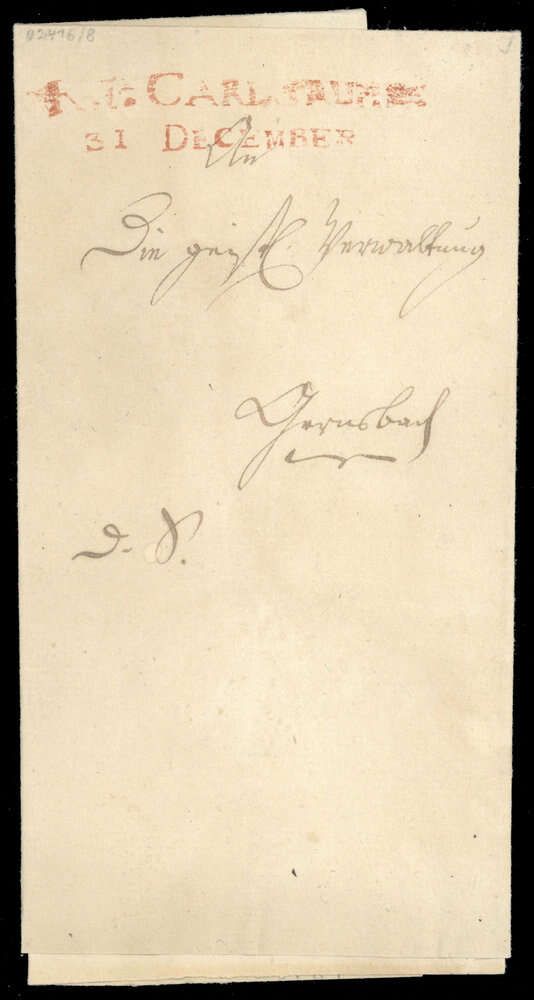 92476/8
R.2. CARLSRUHE
31 DECEMBER
An
Die geistl. Verwaltung
Gernsbach
d. S.